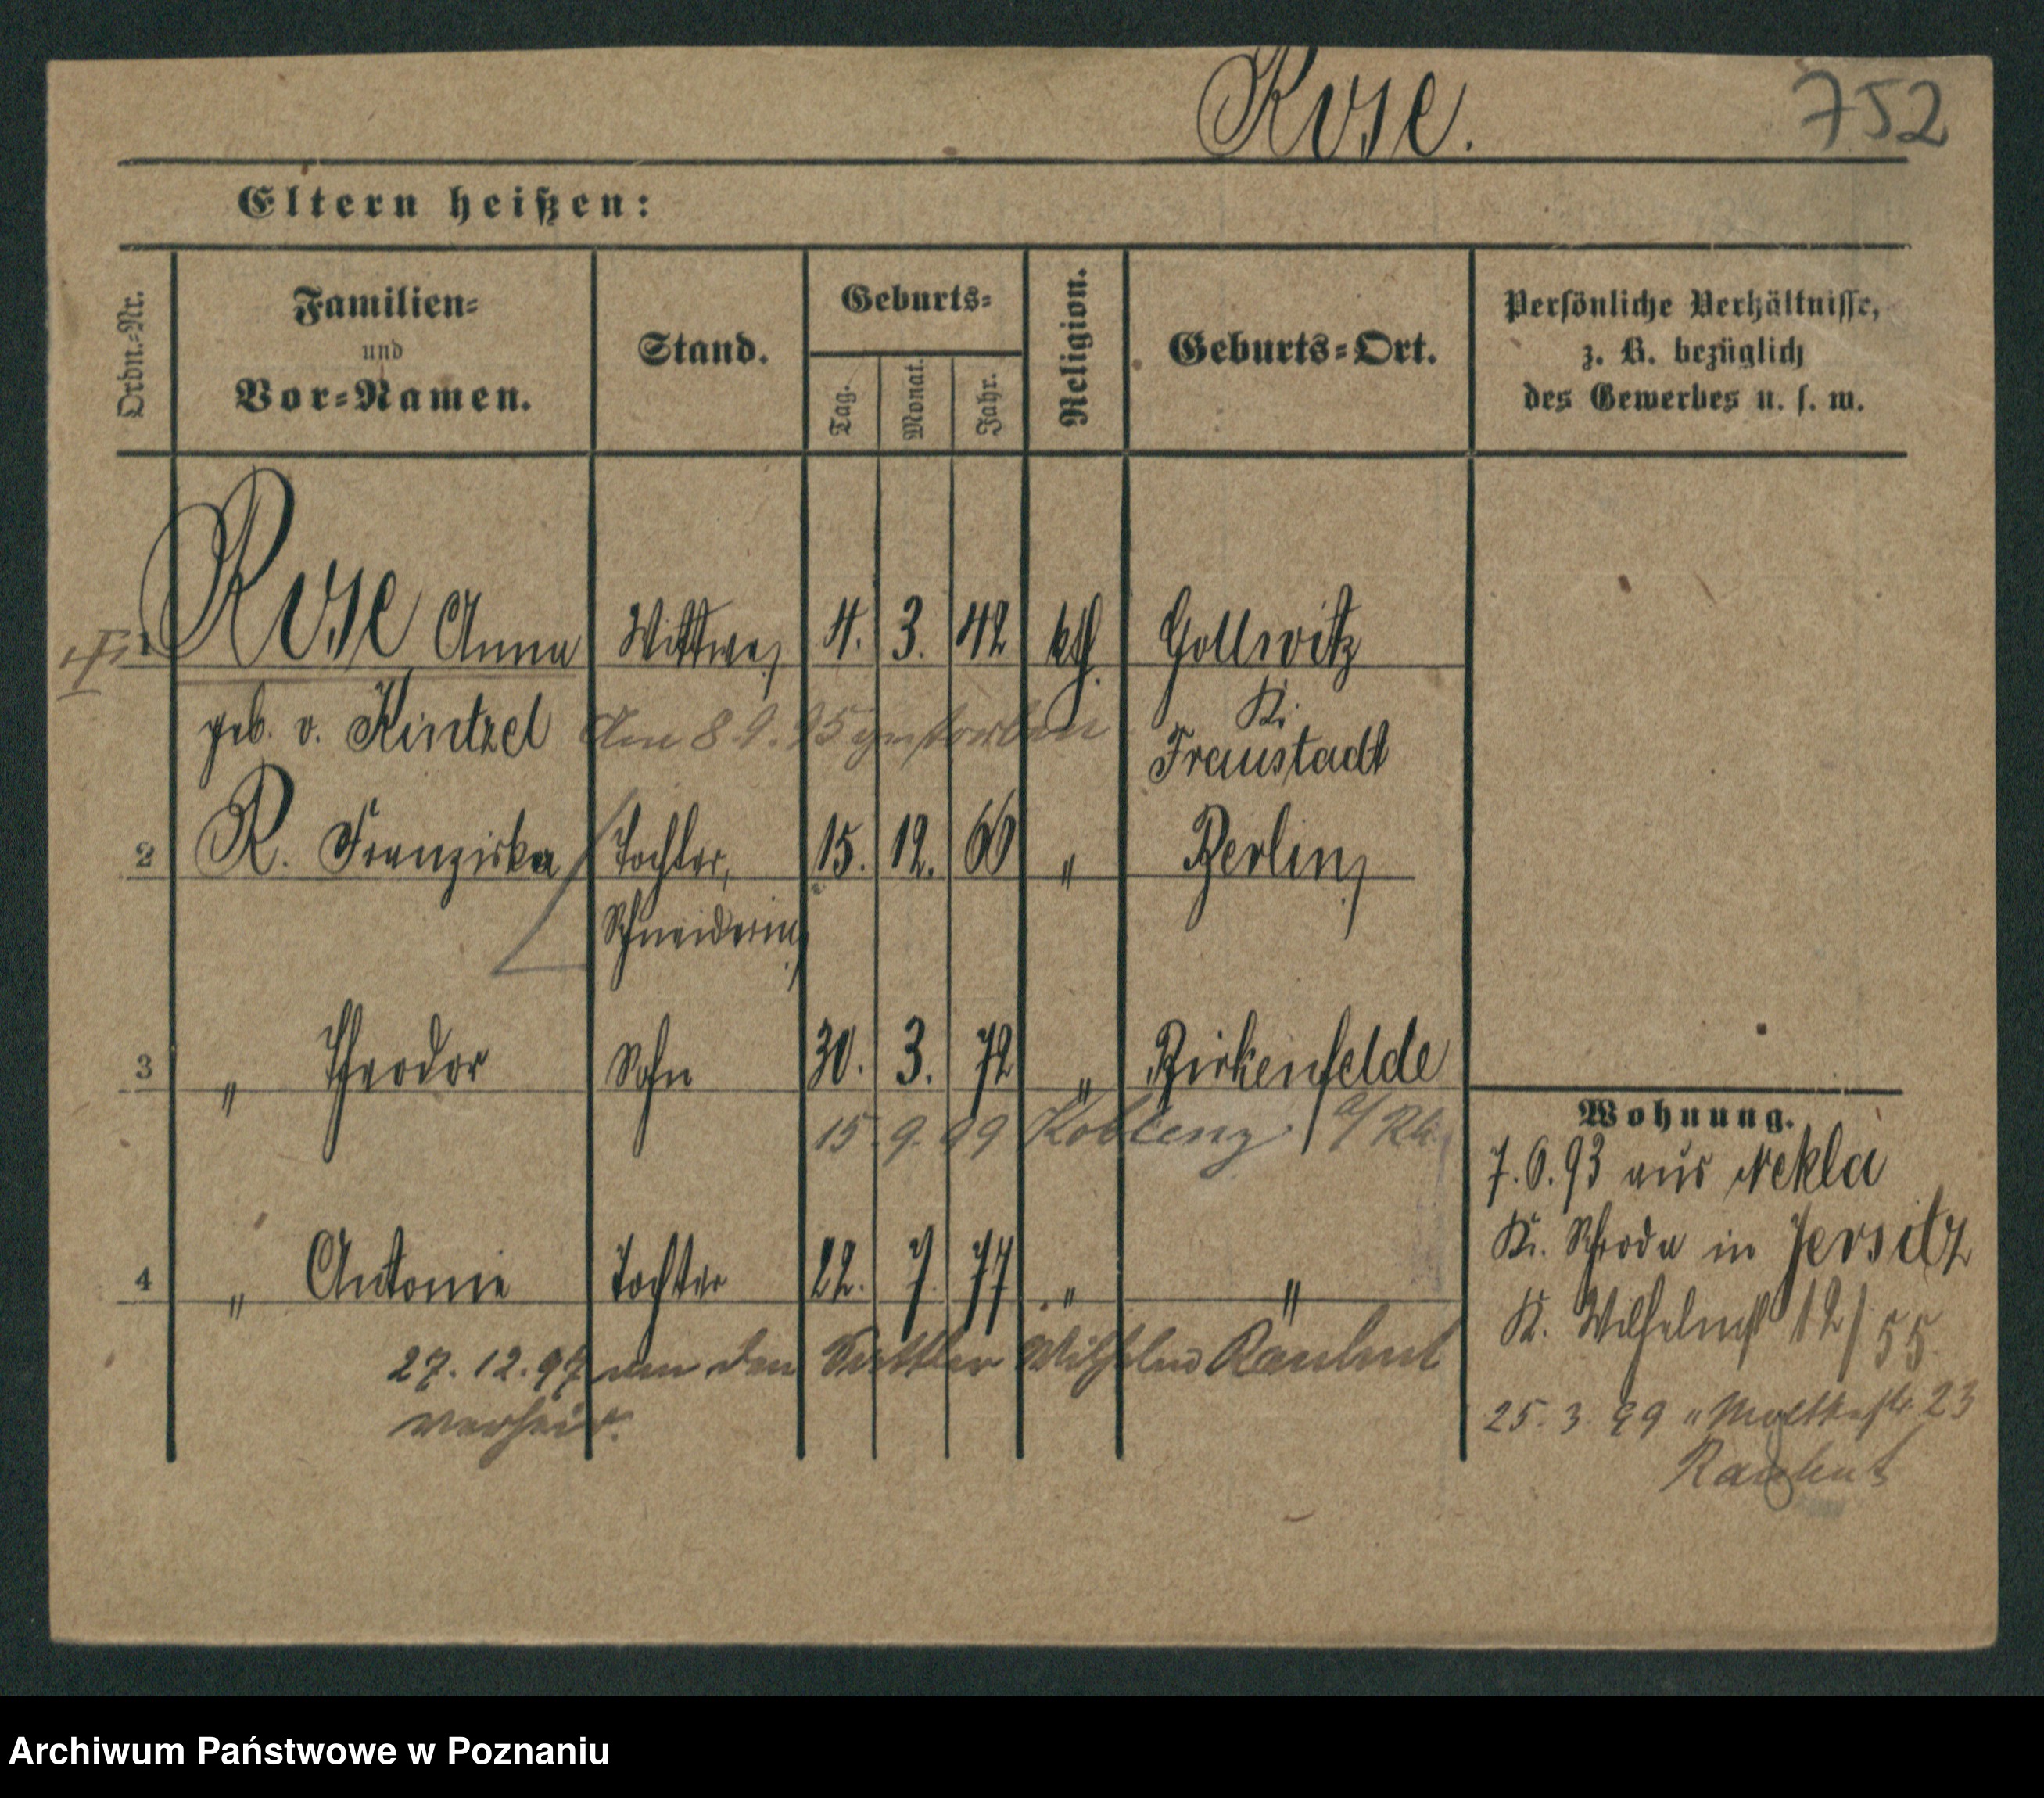 Rose.
752
Eltern heißen:
Ordn.-Nr.
Familien-
und
Vor-Namen.
Stand.
Geburts-
Tag.
Monat.
Jahr.
Religion.
Geburts-Ort.
Persönliche Verhältnisse,
z. B. bezüglich
des Gewerbes u. s. w.
1 Rose Anna Wittwe, 4. 3. 42 kth. Gollwitz
geb. v. Kintzel Am 8. 9. 95 gestorben Kr. Fraustadt
2 R. Franziska Tochter, 15. 12. 66 " Berlin,
Schneiderin,
3 " Theodor Sohn 30. 3. 72 " Birkenfelde
15. 9. 99 Koblenz a/Rh.
4 " Antonie Tochter 22. 7. 77 " "
27. 12. 97 an den Sattler Wilhelm Rauhut
verheir.
Wohnung.
7. 6. 93 aus Nekla
Kr. Schroda in Jersitz
K. Wilhelmst 12/55
25. 3. 99 " Moltkestr. 23
Rauhut
Archiwum Państwowe w Poznaniu